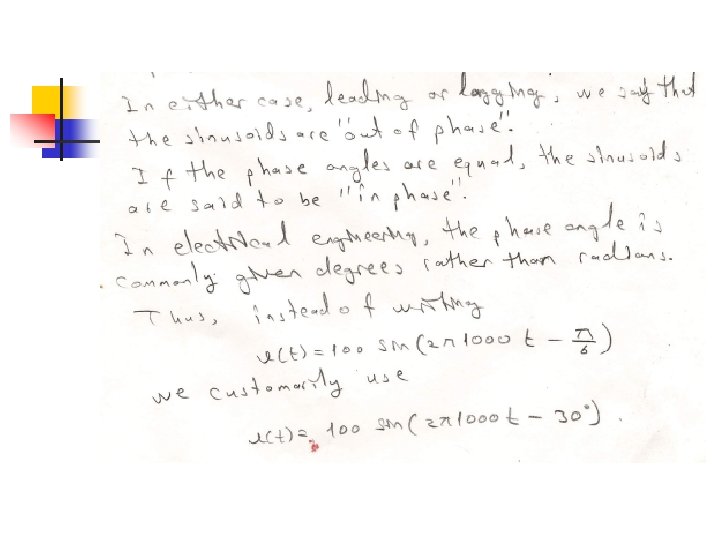 In either case, leading or lagging, we say that
the sinusoids are "out of phase".
If the phase angles are equal, the sinusoids
are said to be "in phase".
In electrical engineering, the phase angle is
commonly given degrees rather than radians.
Thus, instead of writing
v(t) = 100 sin(2π1000t − π/6)
we customarily use
v(t) = 100 sin(2π1000t − 30°).